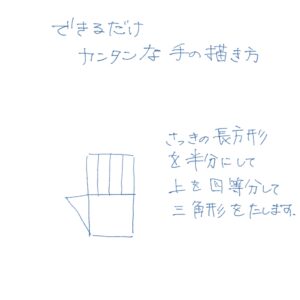 できるだけ
カンタンな手の描き方
さっきの長方形
を半分にして
上を四等分して
三角形をたします.